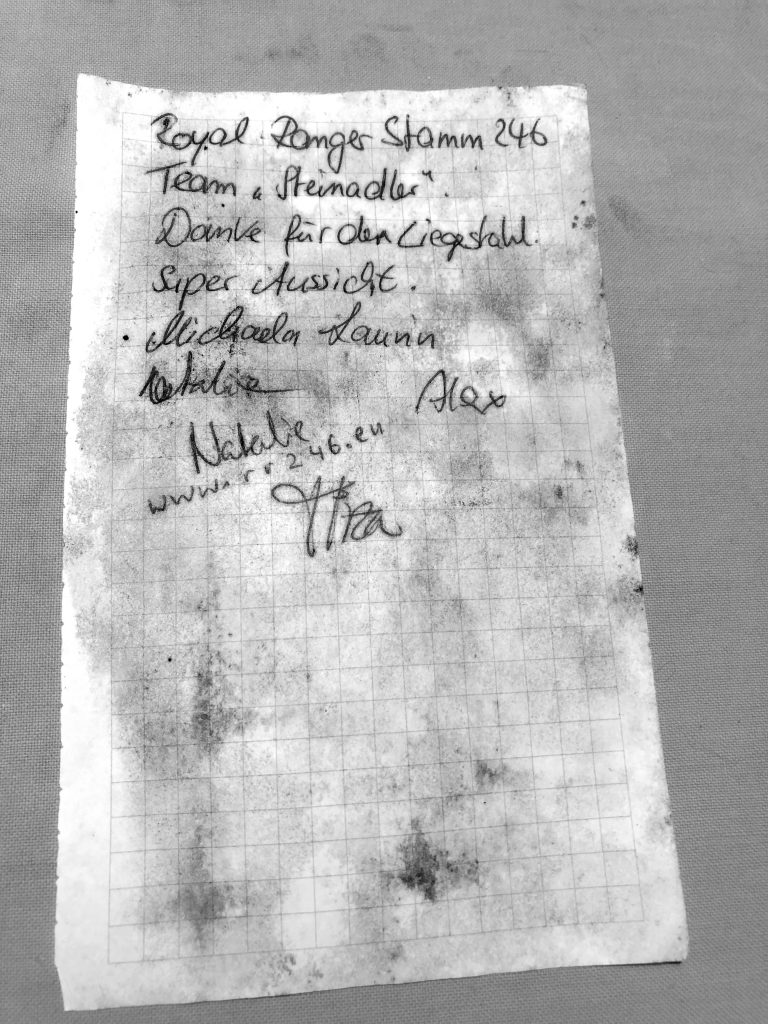 Royal Ranger Stamm 246
Team „Steinadler“.
Danke für den Liegestuhl.
Super Aussicht.
Michaela Laurin
Natalie
Alex
Natalie
www.rr246.eu